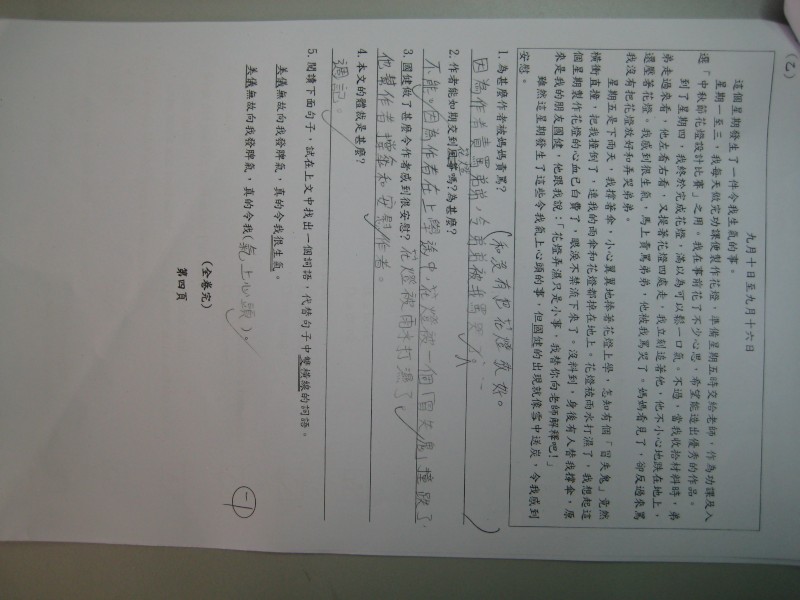 (乙)
九月十日至九月十六日
這個星期發生了一件令我生氣的事。
星期一至三，我每天做完功課便製作花燈，準備星期五時交給老師，作為功課及入
選「中秋節花燈設計比賽」之用。我在事前花了不少心思，希望能造出優秀的作品。
到了星期四，我終於完成花燈，滿以為可以鬆一口氣。不過，當我收拾材料時，弟
弟走過來看，他左看右看，又提著花燈四處走，我立刻追著他，他不小心地跌在地上，
還壓著花燈。我感到很生氣，馬上責罵弟弟，他被我罵哭了。媽媽看見了，卻反過來罵
我沒有把花燈放好和弄哭弟弟。
星期五是下雨天，我撐著傘，小心翼翼地捧著花燈上學，怎知有個「冒失鬼」竟然
橫衝直撞，把我撞倒了，連我的雨傘和花燈都掉在地上。花燈被雨水打濕了，我想起這
個星期製作花燈的心血已白費了，眼淚不禁流下來了。沒料到，身後有人替我撐傘，原
來是我的朋友國健，他跟我說：「花燈弄濕只是小事，我替你向老師解釋吧！」
雖然這星期發生了這些令我氣上心頭的事，但國健的出現就像雪中送炭，令我感到
安慰。
1. 為甚麼作者被媽媽責罵？
(和沒有把花燈放好。
因為作者責罵弟弟，令弟弟被我罵哭
2. 作者能如期交到花燈嗎？為甚麼？
不能。因為作者在上學途中，花燈被一個「冒失鬼」撞跌了，
花燈被雨水打濕了
3. 國健做了甚麼令作者感到很安慰？
他幫作者撐傘和安慰作者。
4. 本文的體裁是甚麼？
週記。
5. 閱讀下面句子，試在上文中找出一個詞語，代替句子中雙橫線的詞語。
美儀無故向我發脾氣，真的令我很生氣。
美儀無故向我發脾氣，真的令我(氣上心頭)。
(全卷完)
第四頁